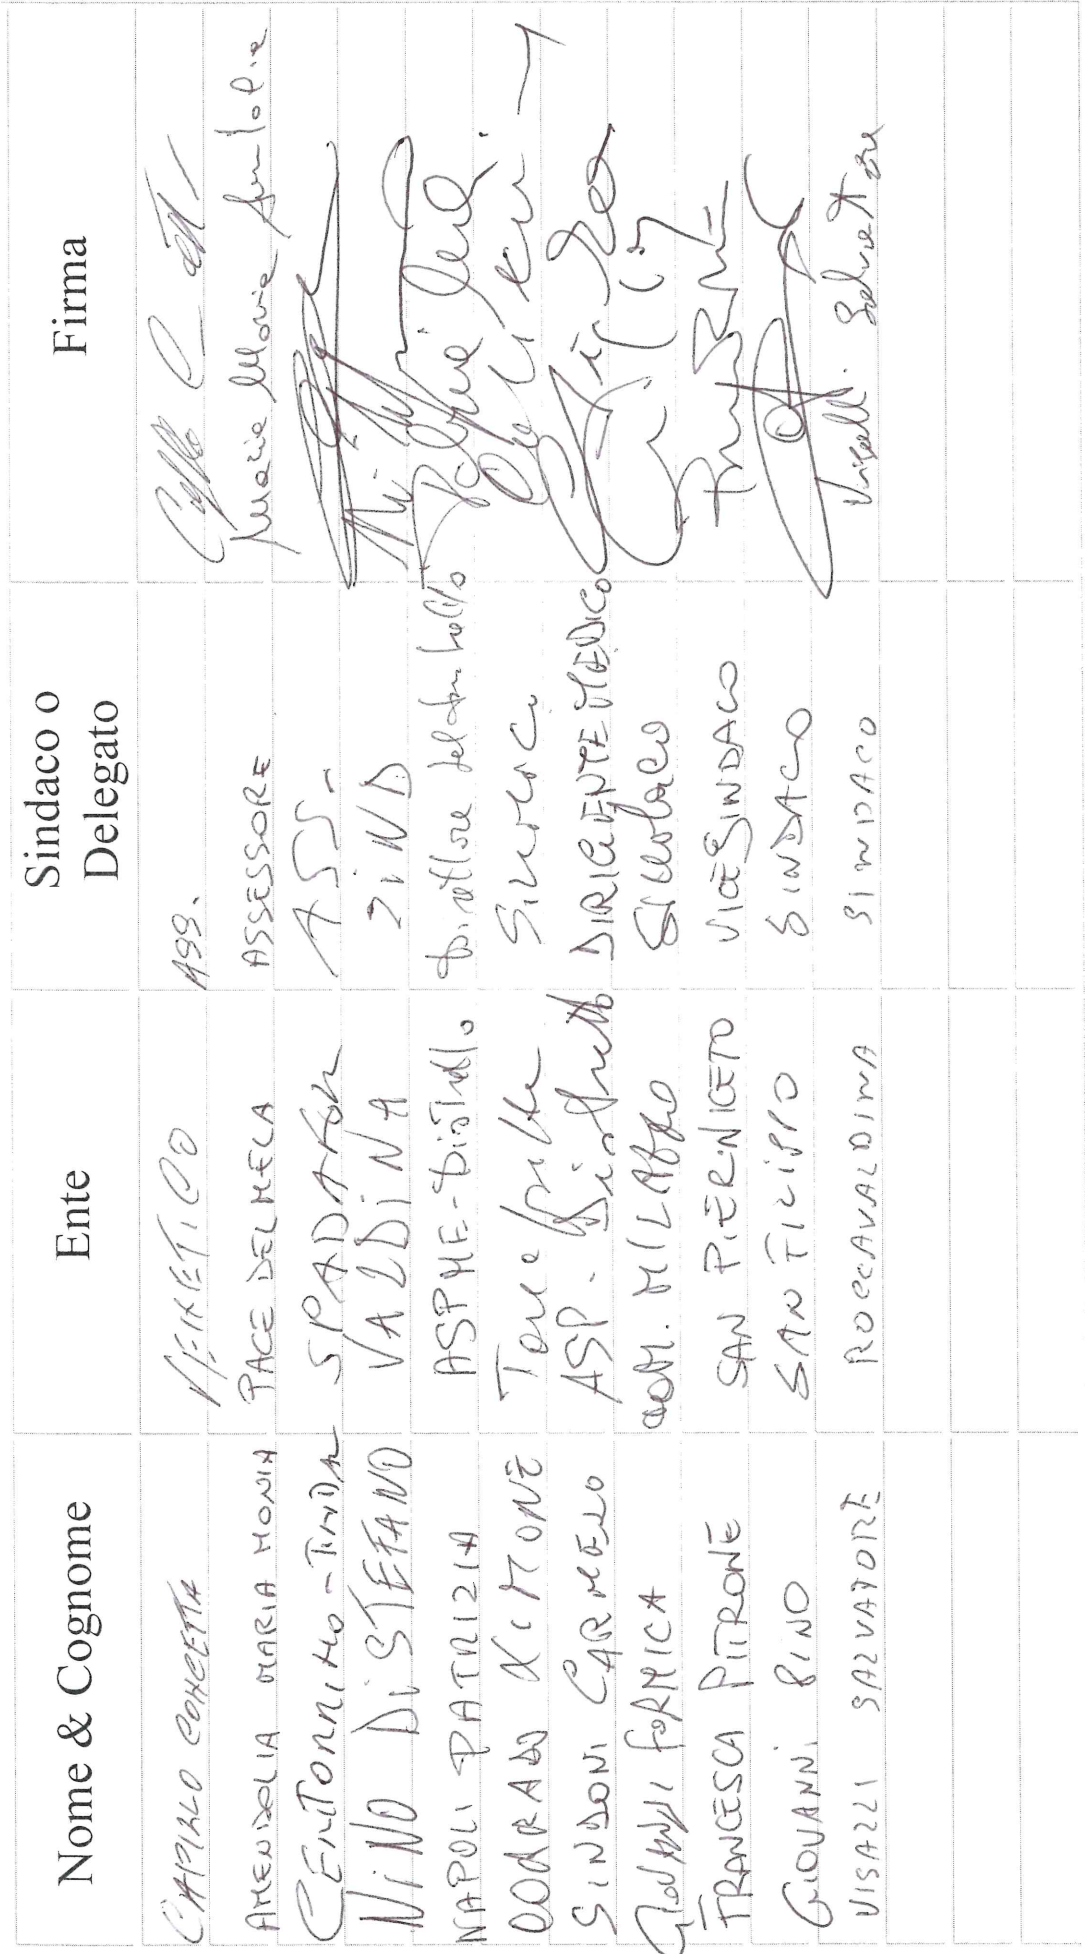 Nome & Cognome Ente Sindaco o Delegato Firma
CAPILLO CONCETTA VENETICO ASS.
AMENDOLIA MARIA MONIA PACE DEL MELA ASSESSORE Maria Monia Amendolia
SPADAFORA ASS.
NINO DI STEFANO VALDINA SIND
NAPOLI PATRIZIA ASP ME - Distretto Direttore del distretto
CORRADO XIMONE Sindaco
SINDONI CARMELO ASP. Distretto DIRIGENTE MEDICO
GIOVANNI FORMICA COM. MILAZZO SINDACO
FRANCESCA PITRONE SAN PIER NICETO VICE SINDACO
GIOVANNI PINO SAN FILIPPO SINDACO
VISALLI SALVATORE ROCCAVALDINA SINDACO Visalli Salvatore